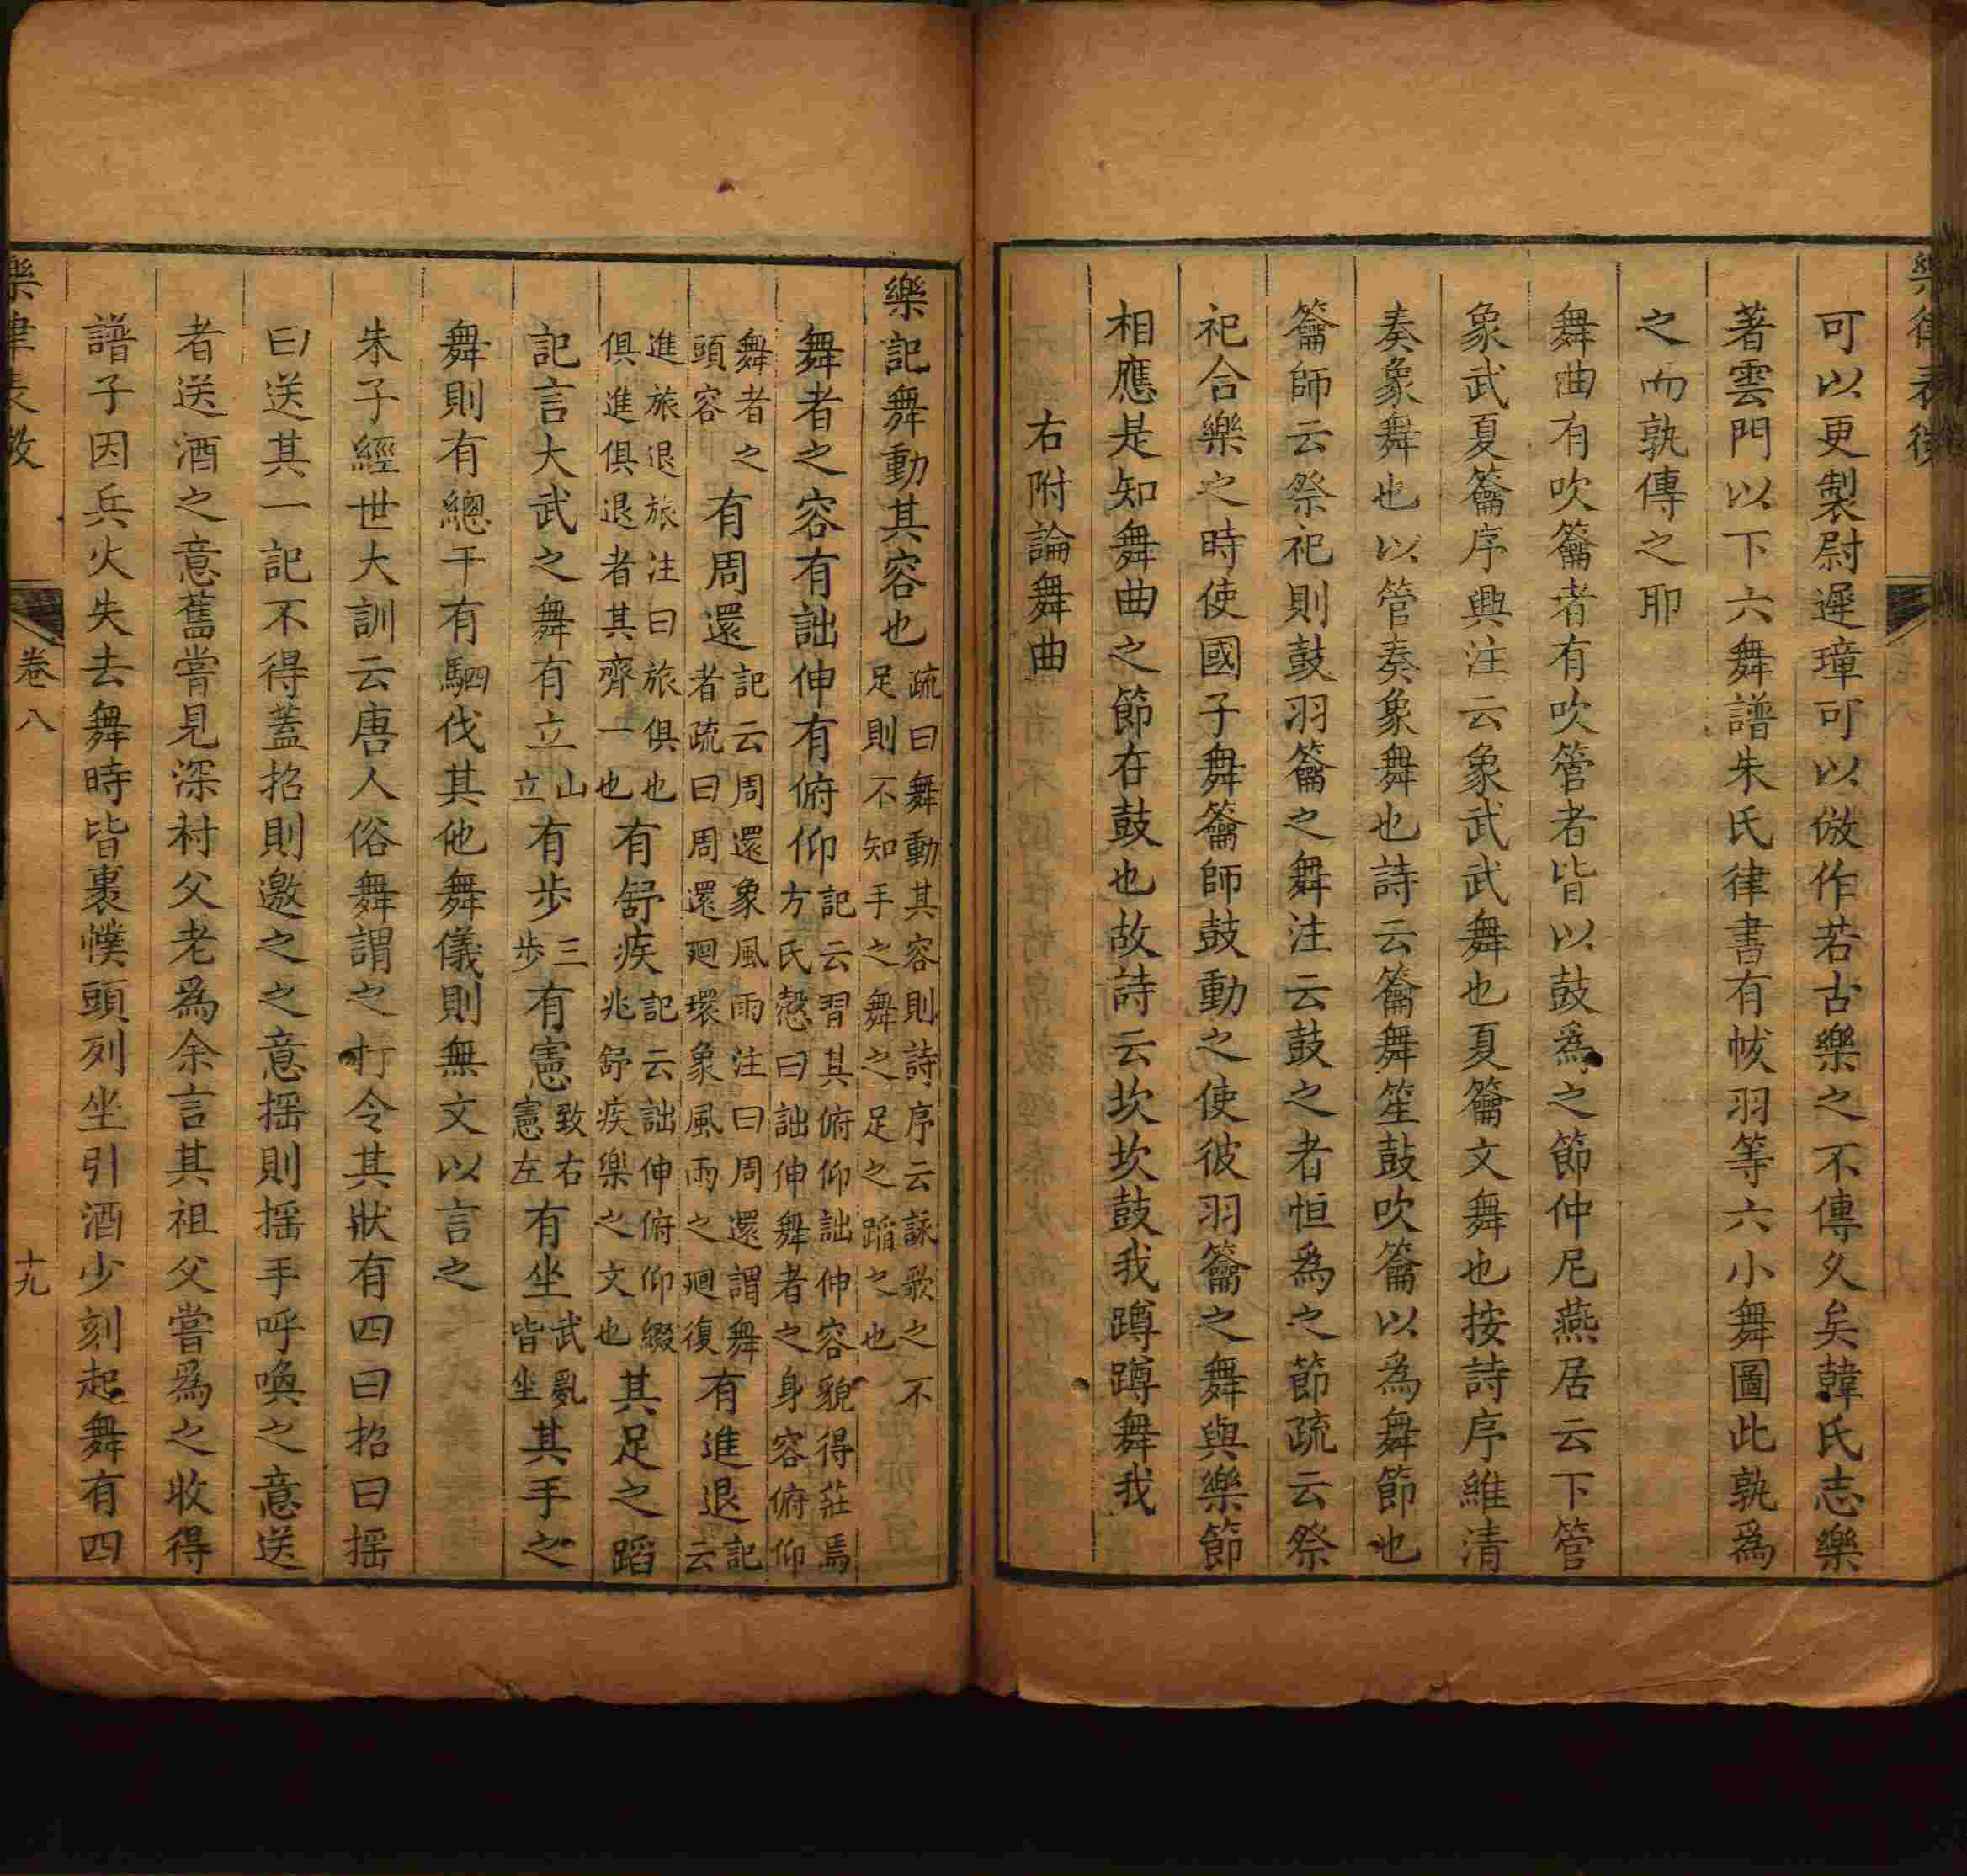 樂律表微
可以更製尉遲璋可以倣作若古樂之不傳久矣韓氏志樂
著雲門以下六舞譜朱氏律書有帗羽等六小舞圖此孰爲
之而孰傳之耶
舞曲有吹籥者有吹管者皆以鼓爲之節仲尼燕居云下管
象武夏籥序興注云象武武舞也夏籥文舞也按詩序維清
奏象舞也以管奏象舞也詩云籥舞笙鼓吹籥以爲舞節也
籥師云祭祀則鼓羽籥之舞注云鼓之者恒爲之節疏云祭
祀合樂之時使國子舞籥師鼓動之使彼羽籥之舞與樂節
相應是知舞曲之節在鼓也故詩云坎坎鼓我蹲蹲舞我
右附論舞曲
樂記舞動其容也疏曰舞動其容則詩序云詠歌之不足則不知手之舞之足之蹈之也
舞者之容有詘伸有俯仰記云習其俯仰詘伸容貌得莊焉方氏慤曰詘伸舞者之身容俯仰
舞者之頭容有周還記云周還象風雨注曰周還謂舞者疏曰周還廻環象風雨之廻復有進退記云
進旅退旅注曰旅俱也俱進俱退者其齊一也有舒疾記云詘伸俯仰綴兆舒疾樂之文也其足之蹈
記言大武之舞有立山立有步三步有憲致右憲左有坐武亂皆坐其手之
舞則有總干有駟伐其他舞儀則無文以言之
朱子經世大訓云唐人俗舞謂之打令其狀有四曰招曰揺
曰送其一記不得蓋招則邀之之意揺則揺手呼喚之意送
者送酒之意舊嘗見深村父老爲余言其祖父嘗爲之收得
譜子因兵火失去舞時皆裹幞頭列坐引酒少刻起舞有四
樂律表微 卷八 十九